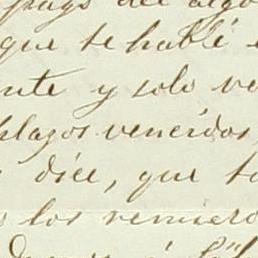 pago del algo
que te hablé
nte y solo ve
plazos vencidos,
dice, que to
los remiero